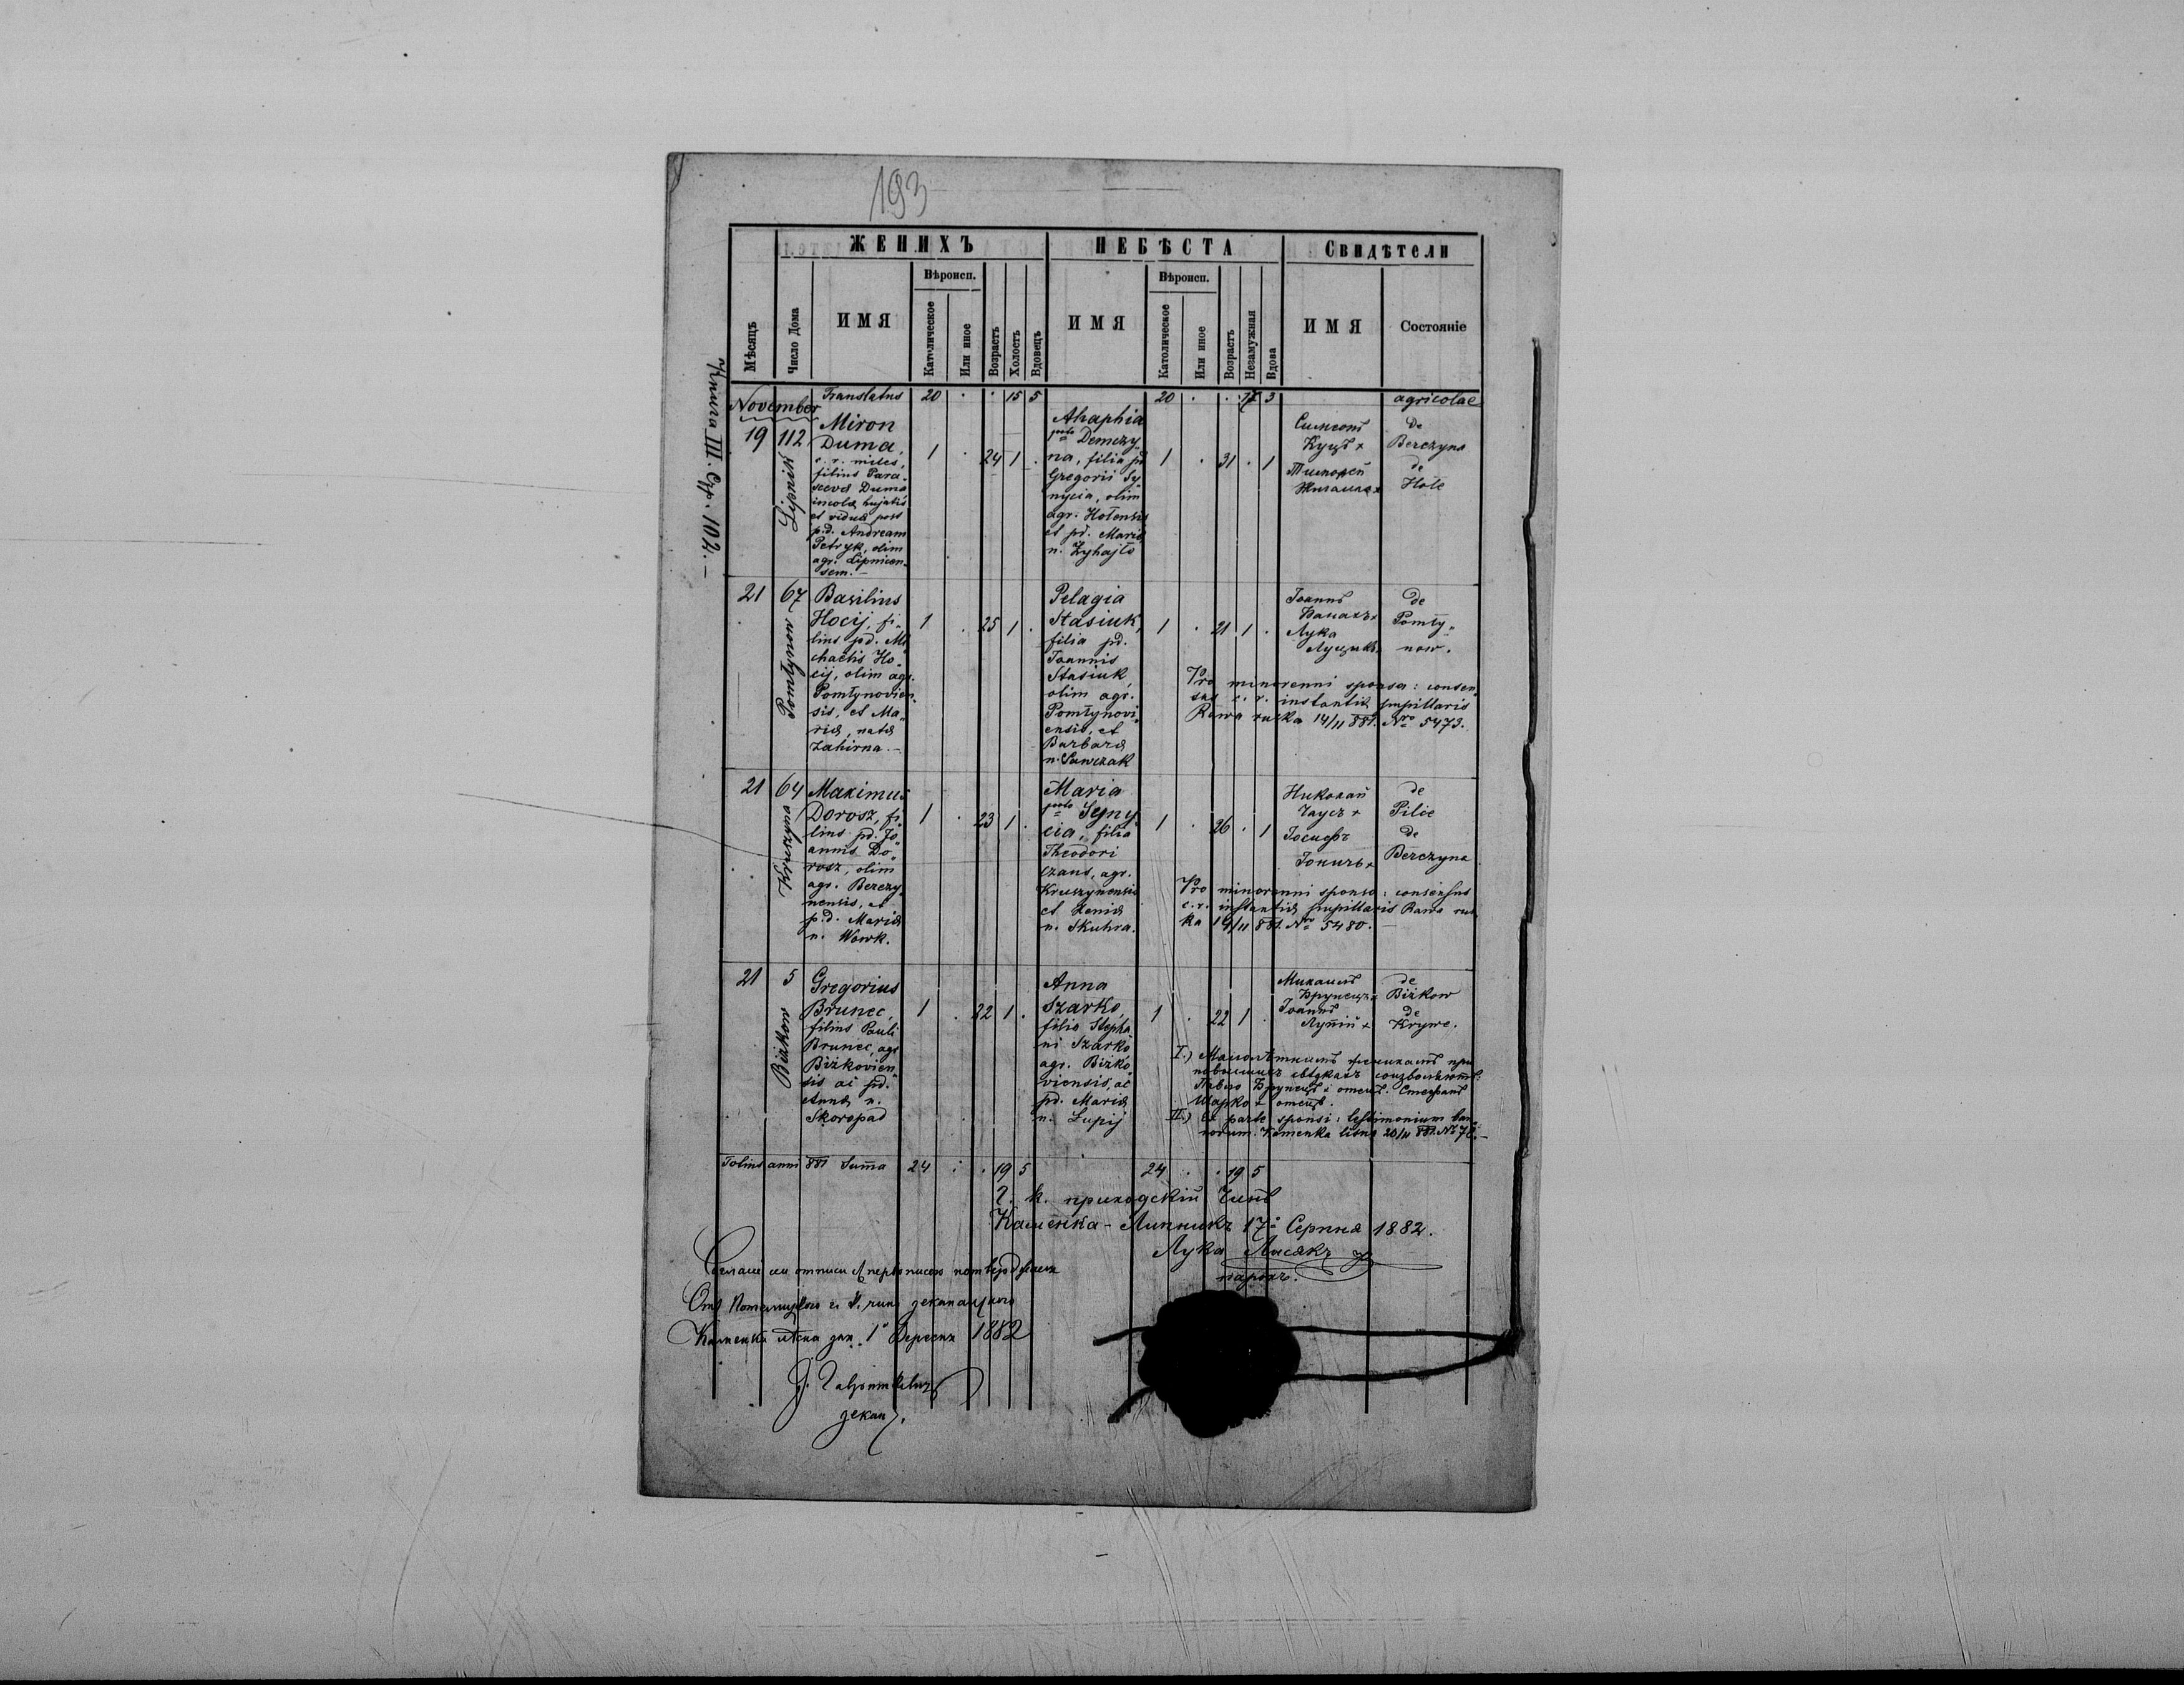 193
ЖЕНИХЪ
НЕВѢСТА
Свидѣтели
Вѣроисп.
Вѣроисп.
Мѣсяцъ
Число Дома
ИМЯ
Католическое
Или иное
Возрастъ
Холостъ
Вдовецъ
ИМЯ
Католическое
Или иное
Возрастъ
Незамужная
Вдова
ИМЯ
Состояніе
Книга III. Стр. 107.-
November
Translatus 20 . . 15 5 20 . . 17 3 agricolae
19 112 Lipnik
Miron
Duma,
c. r. miles,
filius Para-
scevæ Duma
incolæ hujatis
et viduæ post
p.d. Andream
Petryk, olim
agr. Lipnicen-
sem.-
1 . 24 1 .
Ahaphia
Demczy-
na, filia pd
Gregorii Sy-
nycia, olim
agr. Hotensis
et pd. Mariæ
n. Zyhajło
1 . 31 . 1
Симеонъ
Куцъ +
Тимофей
de
Berezyna
de
Hole
21 67 Pomłynow
Basilius
Hocij, fi-
lius pd. Mi-
chaelis Ho-
cij, olim agr.
Pomłynovien-
sis, et Ma-
riæ, natæ
Zahirna.-
1 . 25 1 .
Pelagia
Stasiuk,
filia pd.
Joannis
Stasiuk,
olim agr.
Pomłynovi-
ensis, et
Barbaræ
n. Sawczak
1 . 21 1 .
Іоаннъ
Лука
de
Pomły-
now.
Pro minorenni sponsa: consen-
sus c. r. instantiæ pupillaris
Rawa ruska 14/11 881. Nro 5473.
21 64 Kruszyna
Maximus
Dorosz, fi-
lius pd. Jo-
annis Do-
rosz, olim
agr. Berezy-
nensis, et
p.d. Mariæ
n. Wowk.
1 . 23 1 .
Maria
Syny-
cia, filia
Theodori
agr.
Kruszynensis
et Xeniæ
n. Skuhra.
1 . 26 . 1
Николай
Чаусъ +
Іосифъ
de
Pilie
de
Berezyna
Pro minorenni sponso: consensus
c. r. instantiæ pupillaris Rawa rus-
ka 14/11 881. Nro 5480.
21 5 Biżkow
Gregorius
Brunec,
filius Pauli
Brunec, agr
Biżkovien-
sis ac pd.
Annæ n.
Skoropad
1 . 22 1 .
Anna
Szarko,
filia Stepha-
ni Szarko
agr. Biżko-
viensis, ac
pd. Mariæ
n. Lupij
1 . 22 1 .
Михаилъ
Брунецъ +
Іоаннъ
Лупій +
de
Biżkow
de
Krywe.
I.) Малолѣтнимъ женихамъ при
свѣдкахъ соизволяютъ:
Павло Брунецъ + отецъ. Стефанъ
Шарко + отецъ.
II.) Ex parte sponsi: testimonium ban-
norum. Kamenka lisna 20/11 881. Nr 78.-
Totius anni 881 Suma 24 . . 19 5 24 . . 19 5
Г. к. приходскій Чинъ
Каменка-Липникъ 17го Серпня 1882.
Лука Лисякъ
парохъ.
Каменка лѣсна дня 1го Вересня 1882
декан.